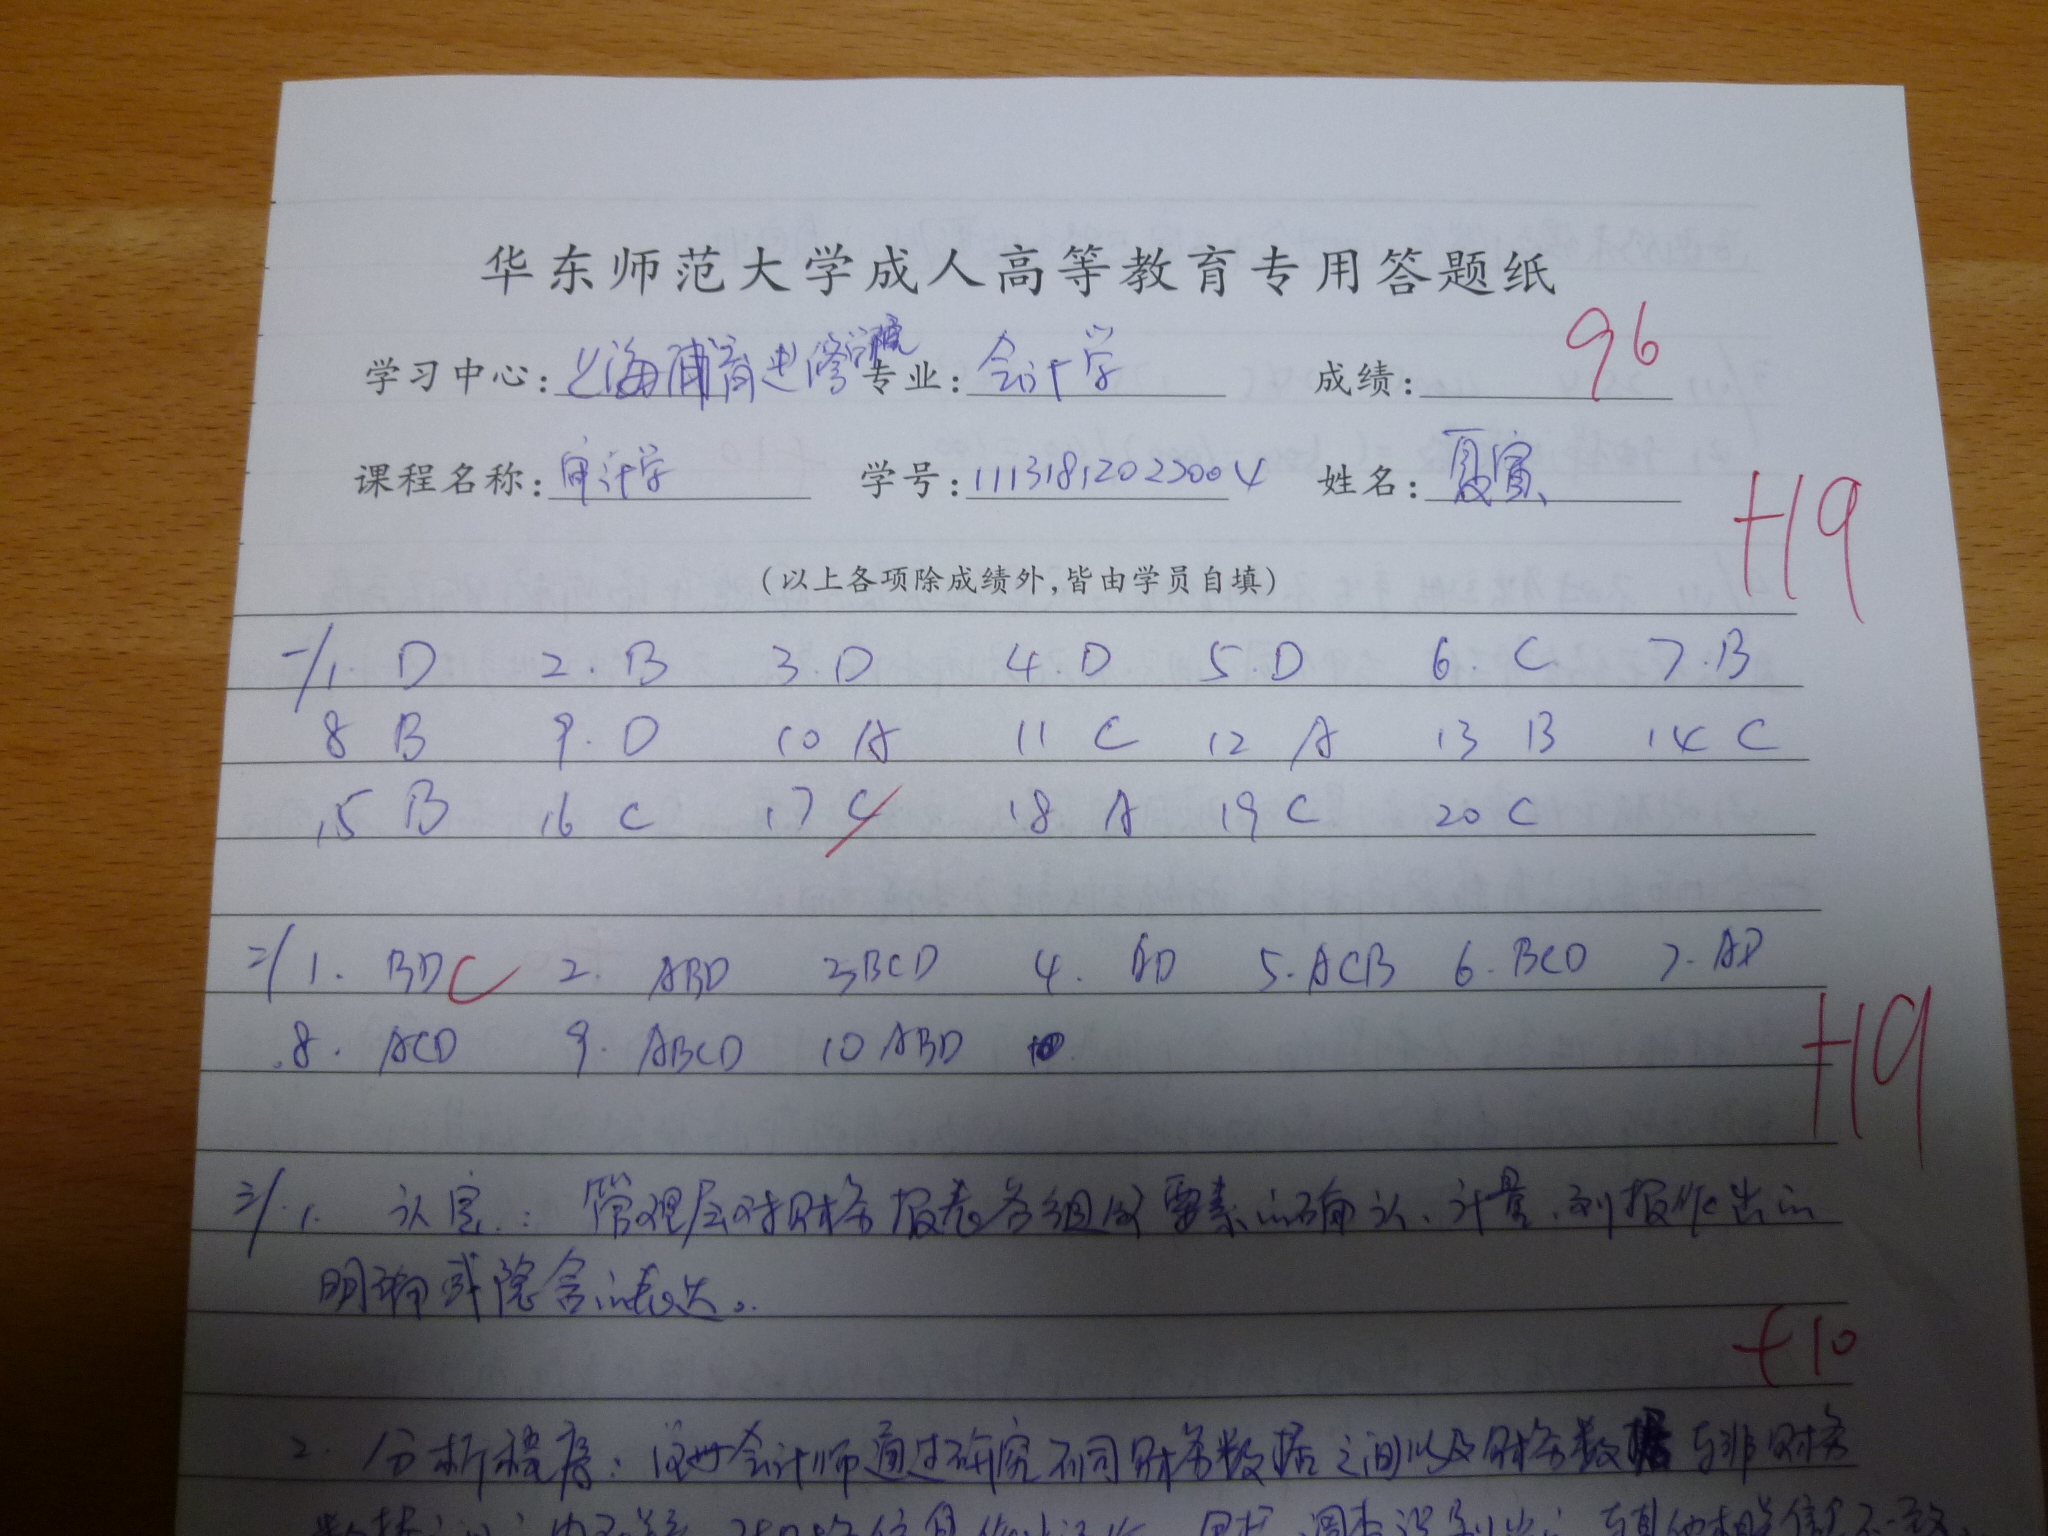 华东师范大学成人高等教育专用答题纸
学习中心: 上海浦育进修学院 专业: 会计学 成绩: 96
课程名称: 审计学 学号: 11131812023004 姓名: 夏寅
+19
(以上各项除成绩外,皆由学员自填)
一/1. D 2. B 3. D 4. D 5. D 6. C 7. B
8 B 9. D 10 A 11 C 12 A 13 B 14 C
15 B 16 C 17 C 18 A 19 C 20 C
二/1. BDC 2. ABD 3 BCD 4. AD 5. ACB 6. BCD 7. AD
8. ACD 9. ABCD 10 ABD
+19
三/.1. 认定: 管理层对财务报表各组成要素的确认、计量、列报作出的
明确或隐含的表达。
+10
2. 分析程序: 注册会计师通过研究不同财务数据之间以及财务数据与非财务